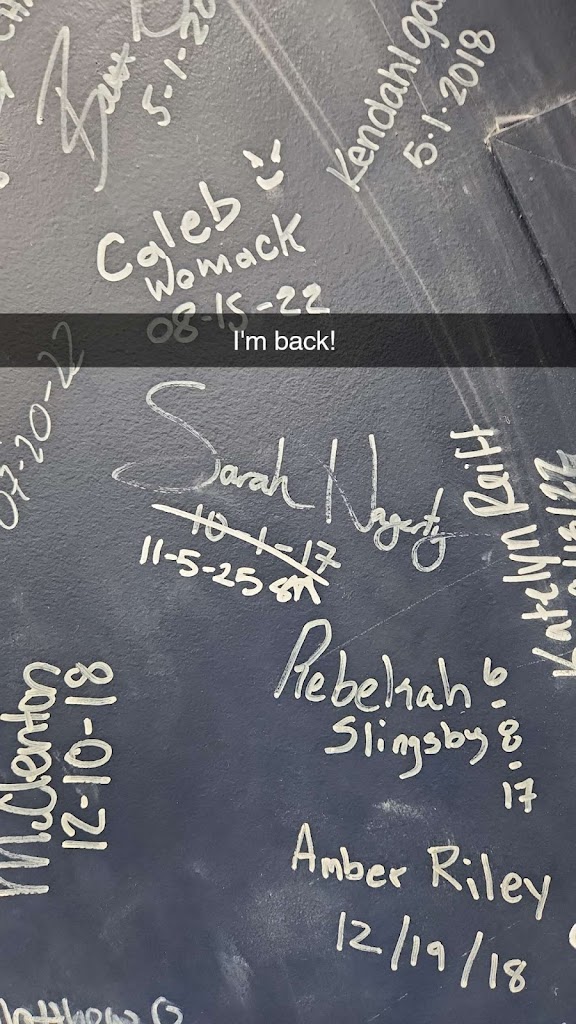 5-1-20
Kendahl ga
5.1.2018
Caleb
Womack
08-15-22
I'm back!
07-20-22
Sarah
10-1-17
11-5-25
Katelyn Reitt
Rebekah
Slingsby
6-8-17
McClenton
12-10-18
Amber Riley
12/19/18